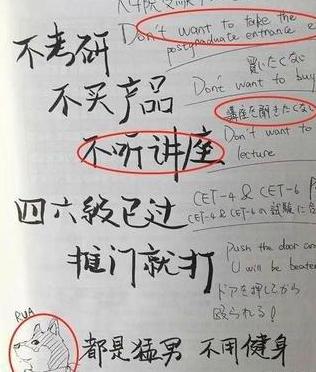 Don't want to take the
postgraduate entrance e
不考研
買いたくない
Dont want to buy
不买产品
講座を聞きたくな
Don't want to
不听讲座
lecture
四六級已过
CET-4 & CET-6 P
CET-4 & CET-6の試験に合
推门就打
Push the door an
U will be beate
ドアを押してから
殴られる!
RUA
都是猛男 不用健身